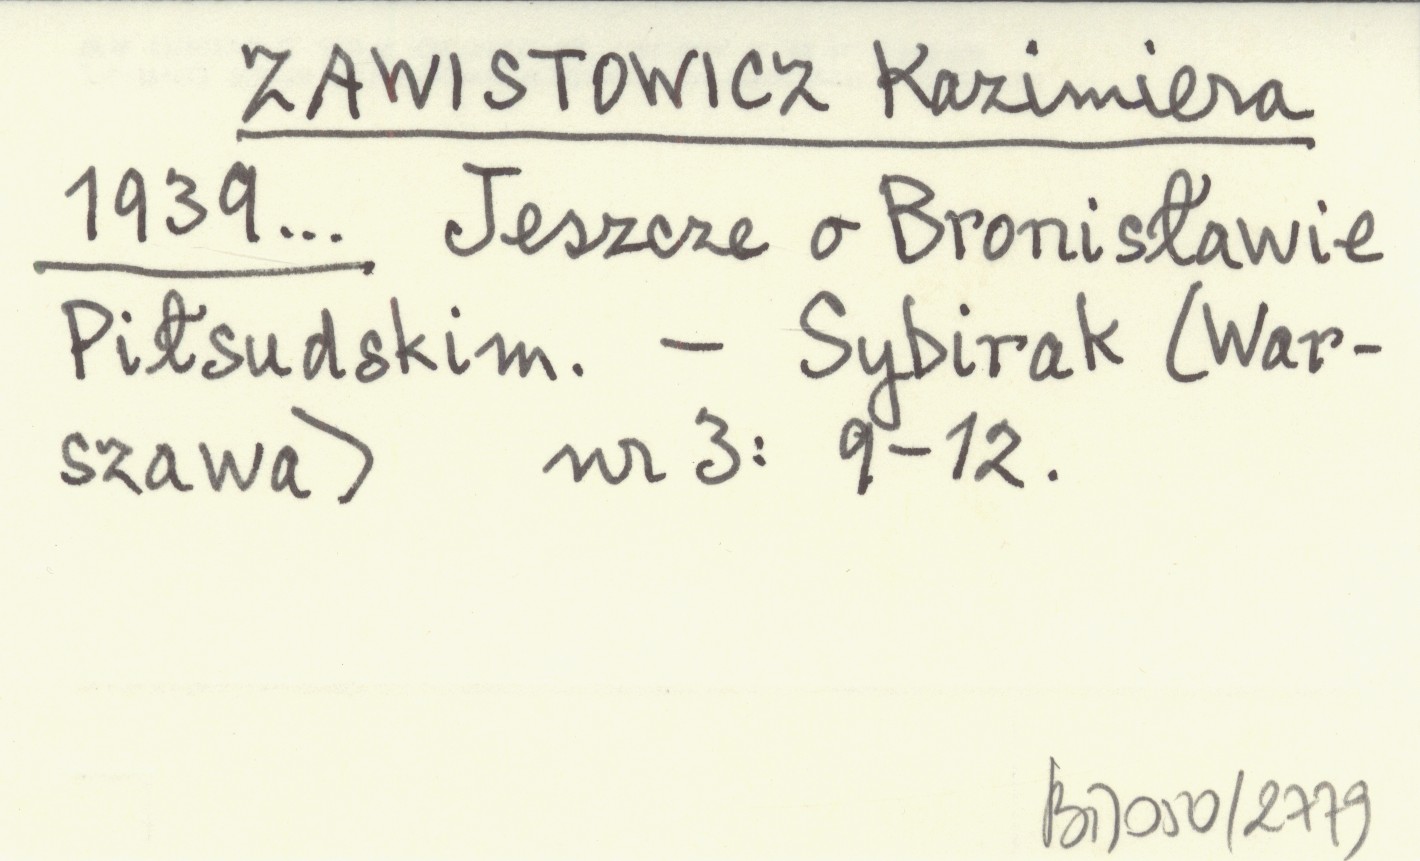 ZAWISTOWICZ Kazimiera
1939... Jeszcze o Bronisławie
Piłsudskim. – Sybirak (War-
szawa) nr 3: 9–12.
/2779